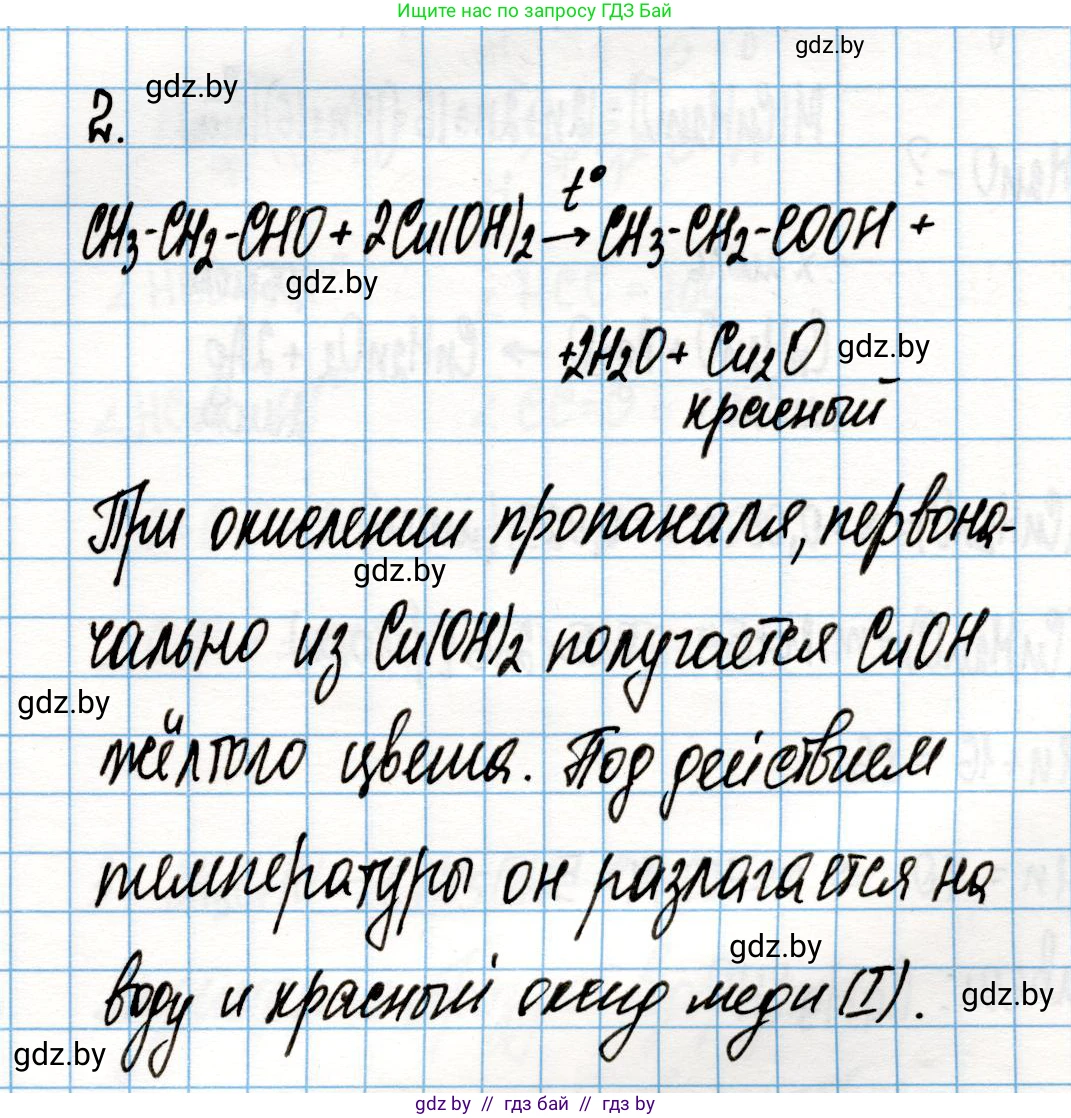 Ищите нас по запросу ГДЗ Бай
gdz.by
gdz.by
2.
CH₃-CH₂-CHO + 2Cu(OH)₂ –t°→ CH₃-CH₂-COOH +
gdz.by
+2H₂O + Cu₂O gdz.by
красный
При окислении пропаналя, первона-
gdz.by
чально из Cu(OH)₂ получается CuOH
gdz.by
жёлтого цвета. Под действием
температуры он разлагается на
gdz.by
воду и красный оксид меди (I).
gdz.by
gdz.by
gdz.by // гдз бай // гдз by